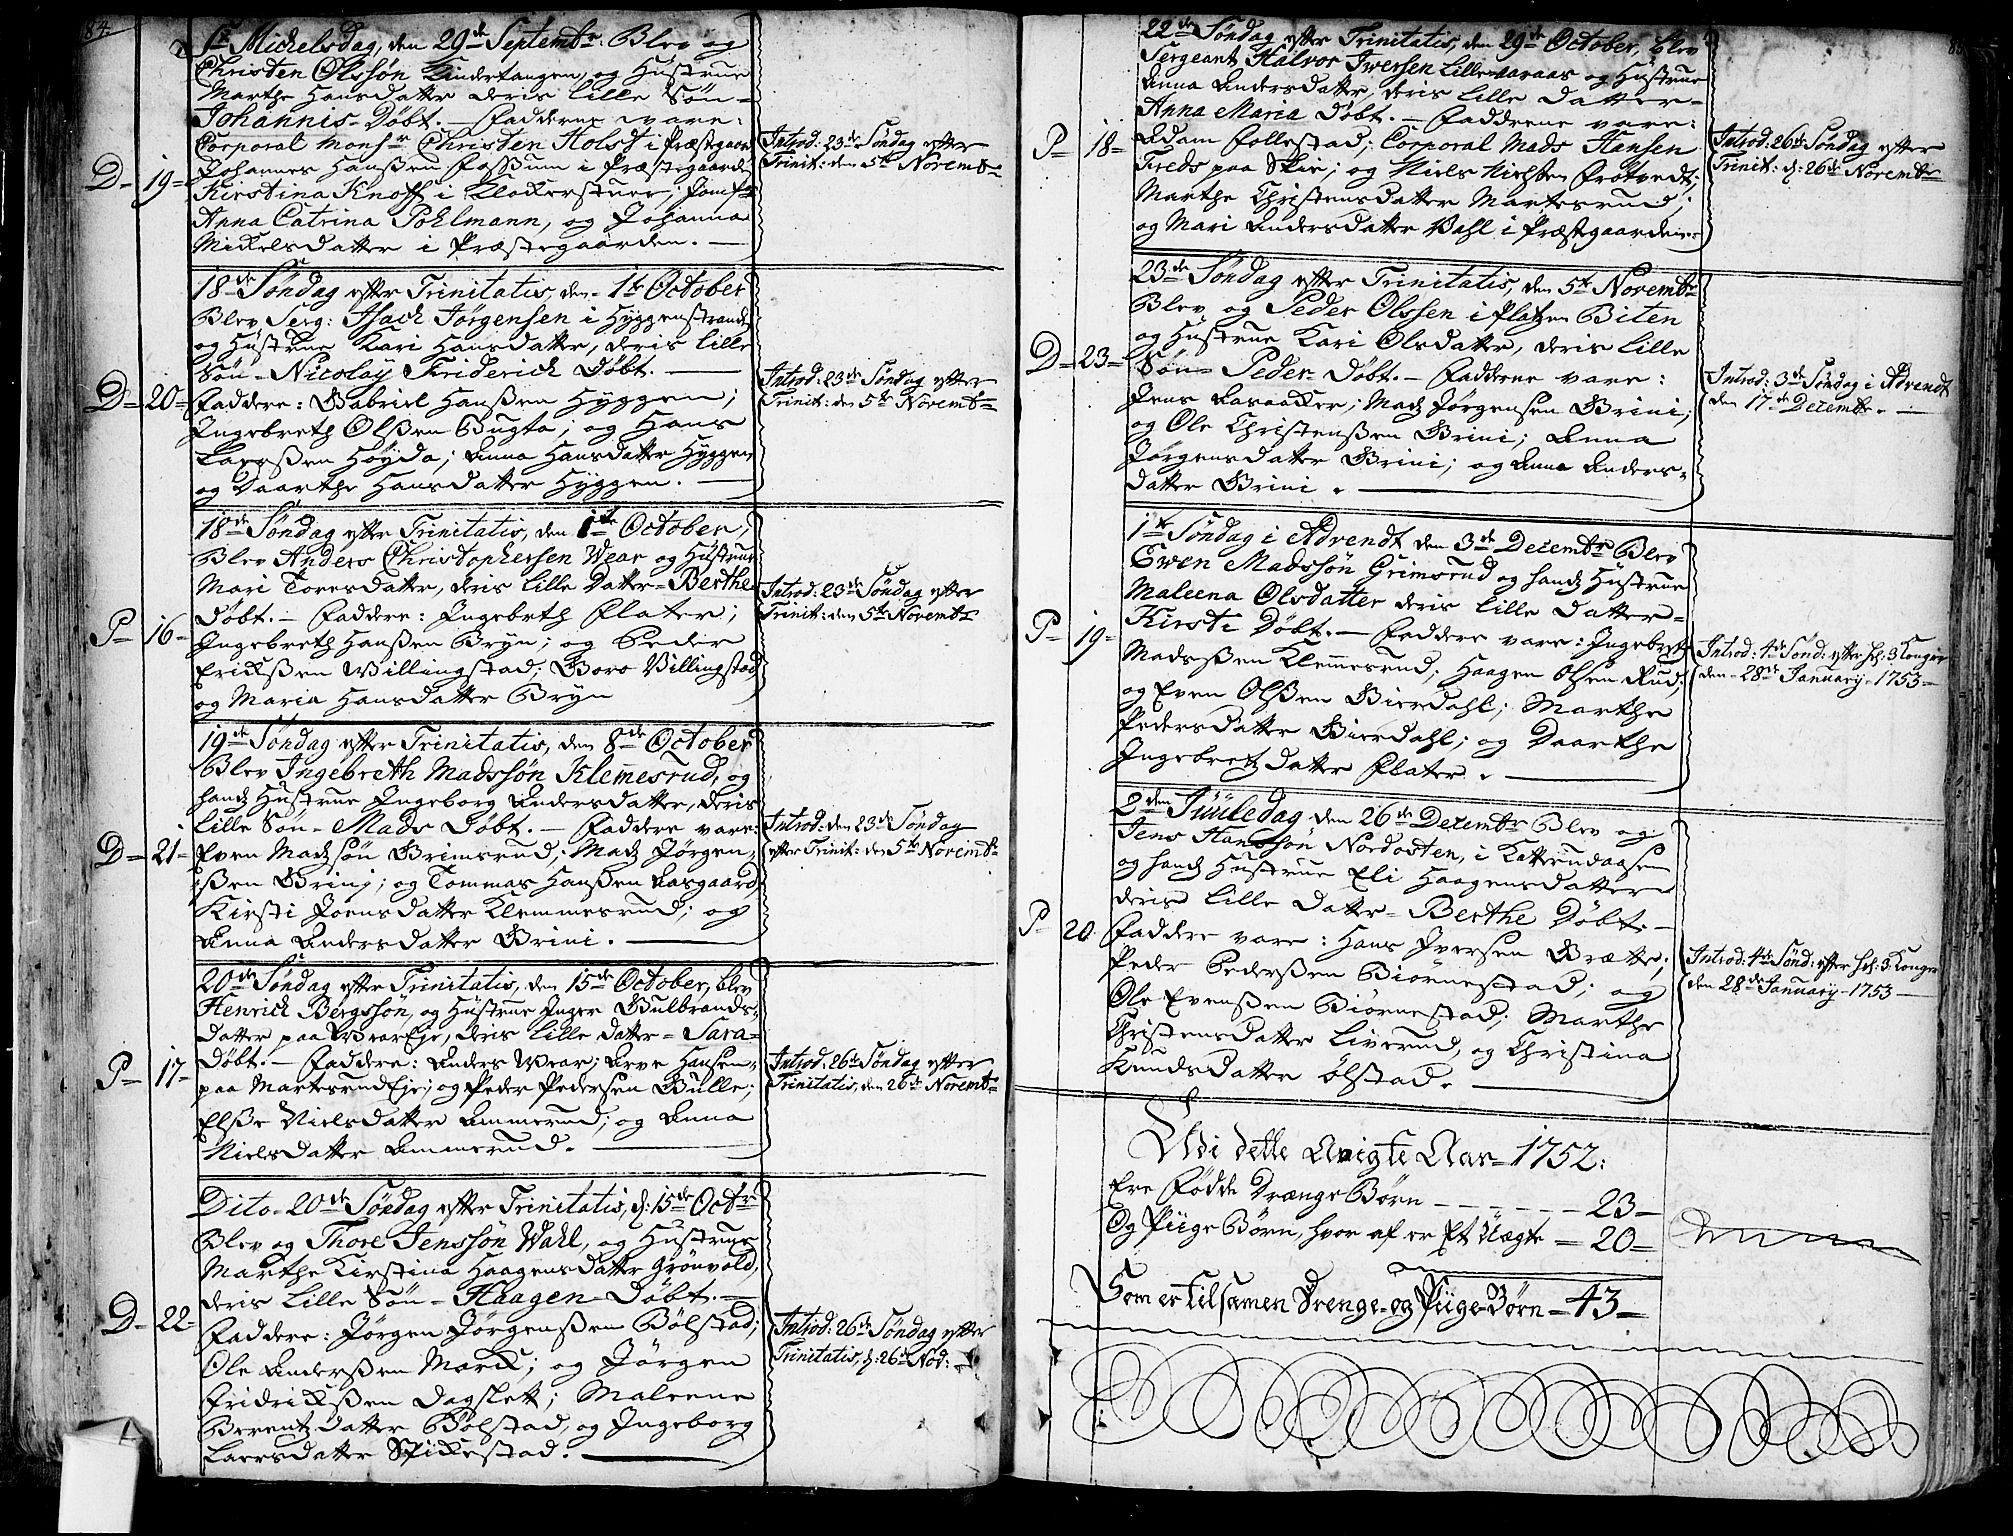 84.
St Michelsdag, den 29de Septembr. Blev og
Christen Olssøn Kindertangen, og Hustrue
Marthe Hansdatter deris lille Søn-
Johannis- Døbt. — Fadderne vare:
Corporal Monsr Christen Holst i Præstegaar
Johannes Hanßen Foßum i Præstegaarden
Kirstina Knoff i Klokerstuen; Jomfr
Anna Catrina Pohlmann, og Johanna
Mickelsdatter i Præstegaarden. —
D- 19-
Introd: 23de Søndag efter
Trinit: den 5te Novembr
18de Søndag efter Trinitatis, den 1te October
Blev Serg: Isach Jørgensen i Hyggenstrand
og Hustrue Kari Hansdatter, deris lille
Søn- Nicolay Friderich Døbt. —
Faddere: Gabriel Hanßen Hyggen;
Ingebreth Olßen Bugta; og Hans
Larßen Høyda; Anna Hansdatter Hyggen
og Daarthe Hansdatter Hyggen. —
D- 20-
Introd: 23de Søndag efter
Trinit: den 5te Novembr
18de Søndag efter Trinitatis, den 1te October,
Blev Anders Christophersen Wear og Hustrue
Mari Toresdatter, deris lille Datter- Berthe
Døbt. — Faddere: Ingebreth Flater;
Ingebreth Hanßen Bryn; og Peder
Erikßen Willingstad; Boro Villingstad
og Maria Hansdatter Bryn
P- 16-
Introd: 23de Søndag efter
Trinit: den 5te Novembr
19de Søndag efter Trinitatis, den 8de October
Blev Ingebreth Madssøn Klemesrud, og
hands Hustrue Ingeborg Andersdatter, deris
lille Søn- Mads Døbt. — Faddere vare:
Even Madssøn Grimsrud; Mads Jørgen-
ßen Brini; og Tommas Hanßen Aasgaard
Kirsti Joensdatter Klemmesrud; og
Anna Andersdatter Brini. —
D- 21-
Introd: den 23de Søndag
efter Trinit: den 5te Novembr
20de Søndag efter Trinitatis, den 15de October, blev
Henrich Bergssøn, og Hustrue Inger Gulbrands-
datter paa WearEje, deris lille datter- Sara-
Døbt. — Faddere: Anders Wear; Arve Hansen
paa MartesrudEje; og Peder Pedersen Bulle;
Elße Nielsdatter Ammerud; og Anna
Nielsdatter Ammerud. —
P- 17-
Introd: 26de Søndag efter
Trinitatis, den 26de Novembr
Dito- 20de Søndag efter Trinitatis, d: 15de Octbr
Blev og Thore Jenssøn Wahl, og Hustrue
Marthe Kirstina Haagensdatter Grönvold,
deris lille Søn- Haagen- Døbt. —
Faddere: Jørgen Jørgenßen Bølstad;
Ole Anderßen Mørk; og Jørgen
Fridrickßen Dagslett; Maleene
Berentzdatter Bølstad, og Ingeborg
Larsdatter Spikestad. —
D- 22-
Introd: 26de Søndag efter
Trinitatis, d: 26de Nov:
22de Søndag efter Trinitatis, den 29de October, blev
Sergeant Halvor Iversen Lillevaraas og Hustrue
Anna Andersdatter, deris lille datter-
Anna Maria Døbt. — Fadderne vare:
Adam Follestad; Corporal Mads Hansen
Treds paa Skie; og Niels Nielsen Frøtvedt;
Marthe Christensdatter Martesrud;
og Mari Andersdatter Vahl i Præstegaarden
P- 18-
Introd: 26de Søndag efter
Trinit: d: 26de Novembr
23de Søndag efter Trinitatis, den 5te Novembr
Blev og Peder Olssen i Platzen Biten
og Hustrue Kari Olsdatter, deris lille
Søn- Peder- Døbt. — Fadderne vare:
Jens Aaraaker; Mads Jørgensen Brini;
og Ole Christenßen Brini; Anna
Jørgensdatter Brini; og Anna Anders-
datter Brini. —
D- 23-
Introd: 3de Søndag i Advendt
den 17de Decembr. —
1te Søndag i Advendt den 3de Decembr Blev
Ewen Madssøn Grimsrud og hands Hustrue
Maleena Olsdatter deris lille datter-
Kirsti Døbt. — Faddere vare: Ingebreth
Madsßen Klemmesrud; Haagen Olsen Rud;
og Even Olßen Bierdahl; Marthe
Pedersdatter Bierdahl; og Daarthe
Ingebretzdatter Flater. —
P- 19-
Introd: 4de Sønd: efter Hel: 3 Konger
den 28de January- 1753-
2den Juuledag den 26de Decembr Blev og
Jens Hanssøn Nordosten, i Katterudaasen
og hands Hustrue Eli Haagensdatter
deris lille datter- Berthe Døbt. —
Faddere vare: Hans Iversen Bratte;
Peder Pederßen Biørnestad; og
Ole Evenßen Biørnestad; Marthe
Christensdatter Liverud, og Christina
Knudsdatter Ølstad. —
P- 20
Introd: 4de Sønd: efter Hel: 3 Konger
den 28de January- 1753 —
Udi dette Avigte Aar- 1752:
Ere Fødde Drænge Børn - - - - - - - 23-
Og Piige Børn, hvor af er Et Uægte = 20=
Som er tilsamen Drenge- og Piige-Børn- 43-